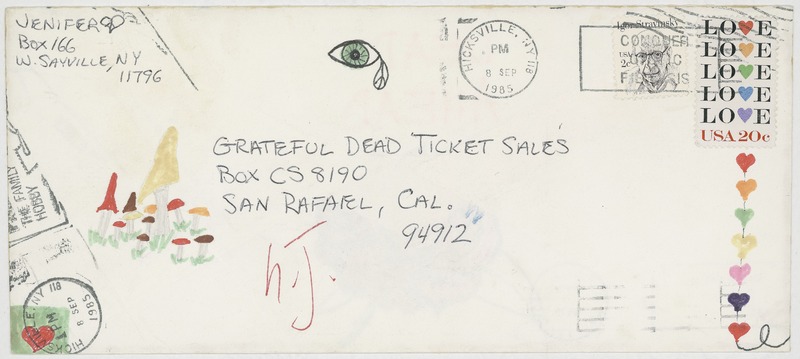 JENIFER
BOX 166
W. SAYVILLE, NY
11796
HICKSVILLE, NY 118
PM
8 SEP
1985
Igor Stravinsky
USA
2c
CONQUER
CYSTIC
FIBROSIS
LOVE
LOVE
LOVE
LOVE
LOVE
USA 20c
GRATEFUL DEAD TICKET SALES
BOX CS 8190
SAN RAFAEL, CAL.
94912
THE FAMILY
HOBBY
HICKSVILLE NY 118
PM
8 SEP
1985